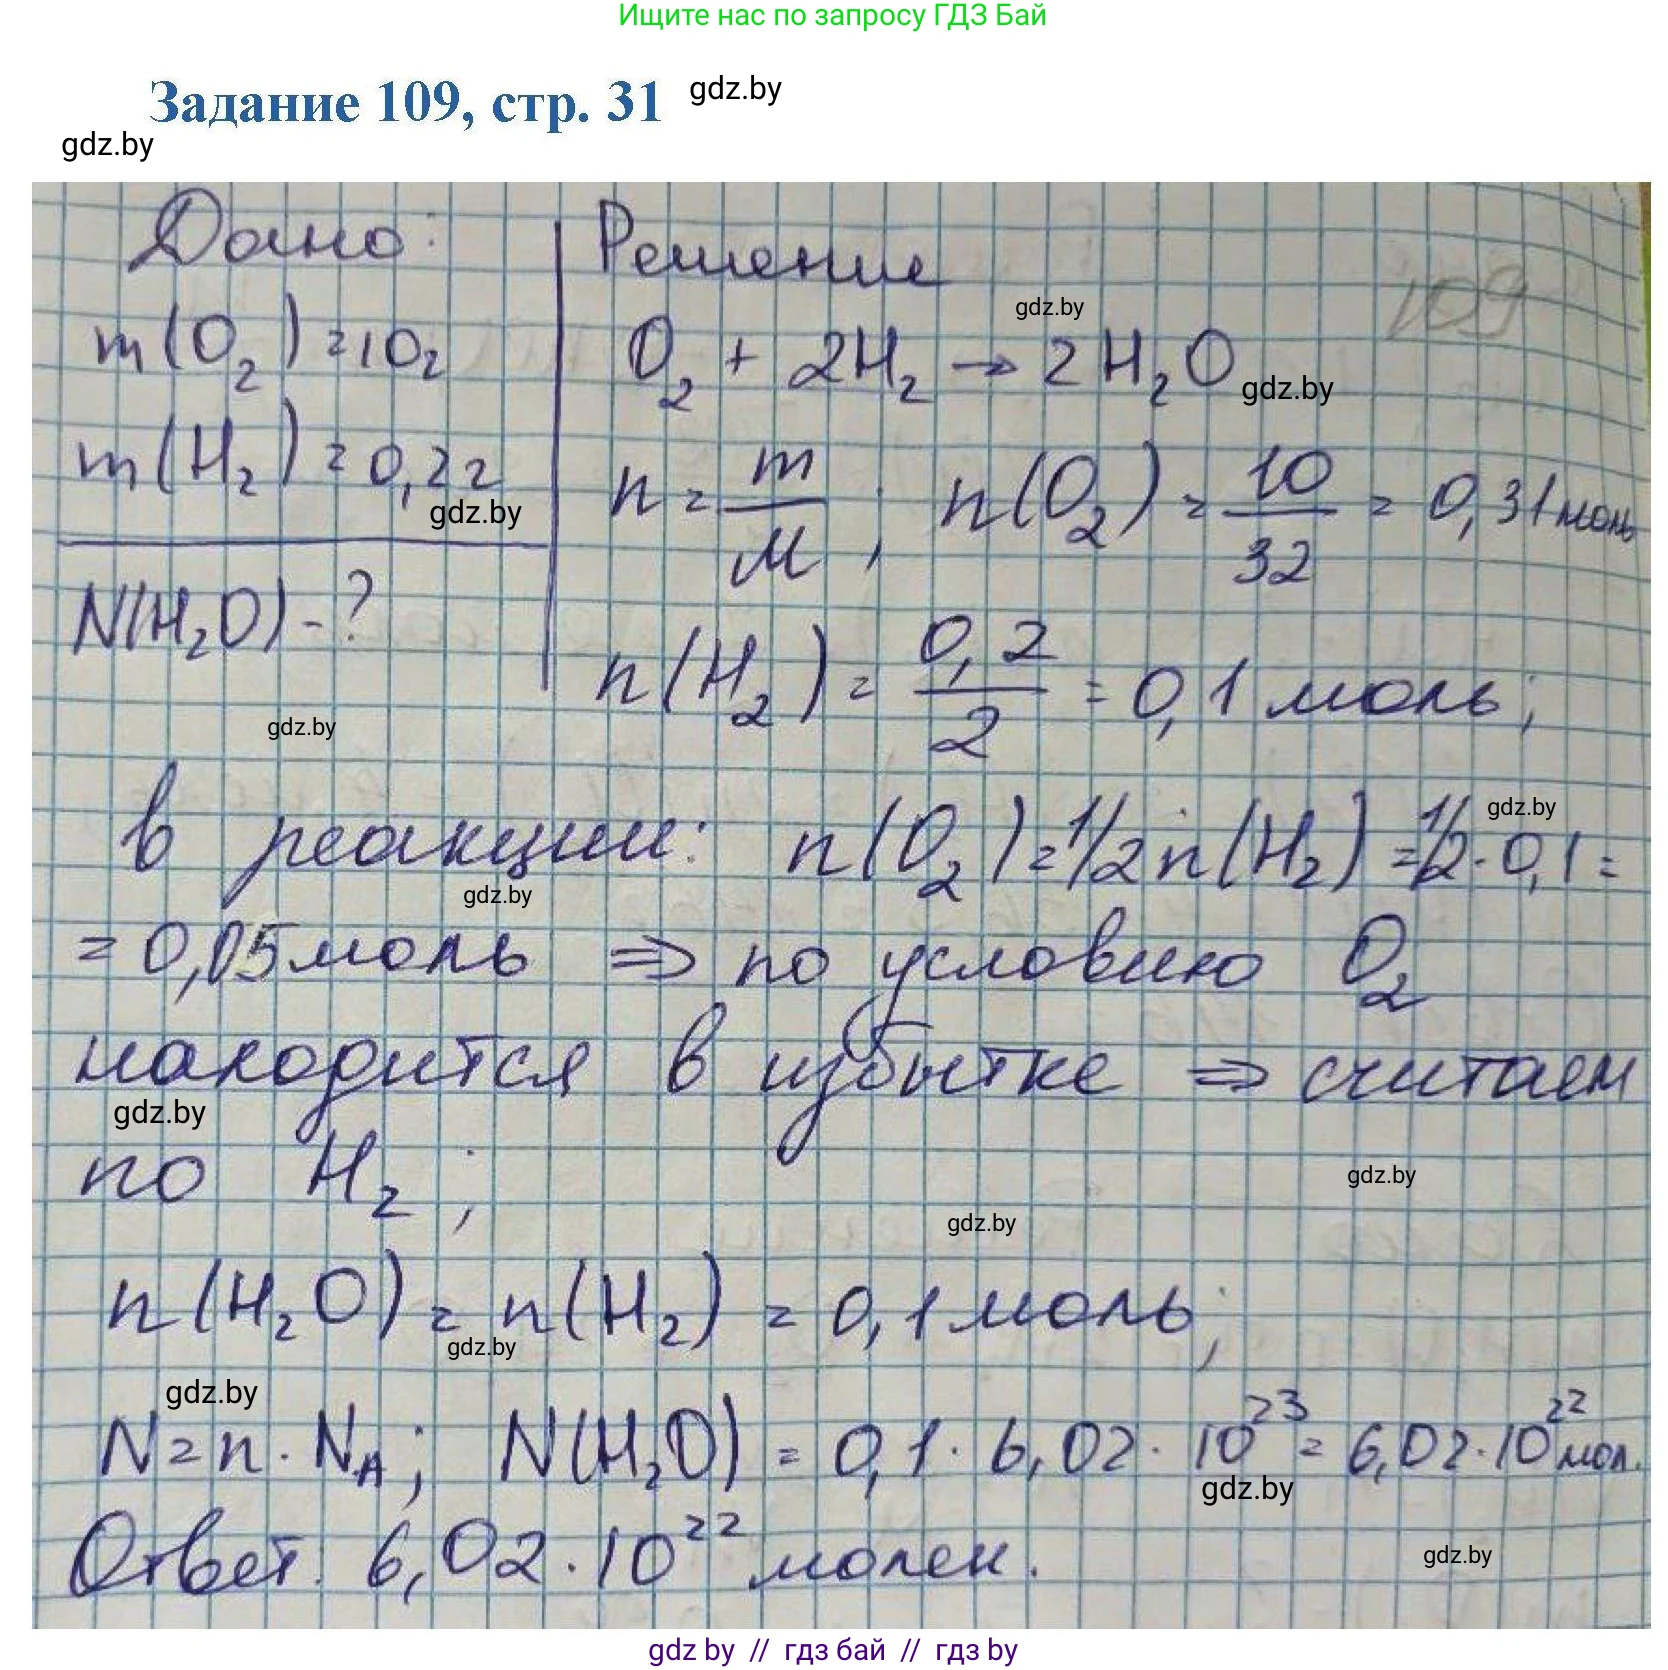 Ищите нас по запросу ГДЗ Бай
Задание 109, стр. 31 gdz.by
gdz.by
Дано:
m(O₂) = 10г
m(H₂) = 0,2г
gdz.by
N(H₂O) - ?
gdz.by
Решение
109
gdz.by
O₂ + 2H₂ → 2H₂O gdz.by
n = m/M ; n(O₂) = 10/32 = 0,31 моль
n(H₂) = 0,2/2 = 0,1 моль;
gdz.by
в реакции: n(O₂) = 1/2 n(H₂) = 1/2 · 0,1 =
gdz.by
= 0,05 моль ⇒ по условию O₂
находится в избытке ⇒ считаем
gdz.by
по H₂ ;
gdz.by
gdz.by
n(H₂O) = n(H₂) = 0,1 моль;
gdz.by
gdz.by
N = n · N_A; N(H₂O) = 0,1 · 6,02 · 10²³ = 6,02 · 10²² мол.
gdz.by
Ответ: 6,02 · 10²² молек.
gdz.by
gdz by // гдз бай // gdz by